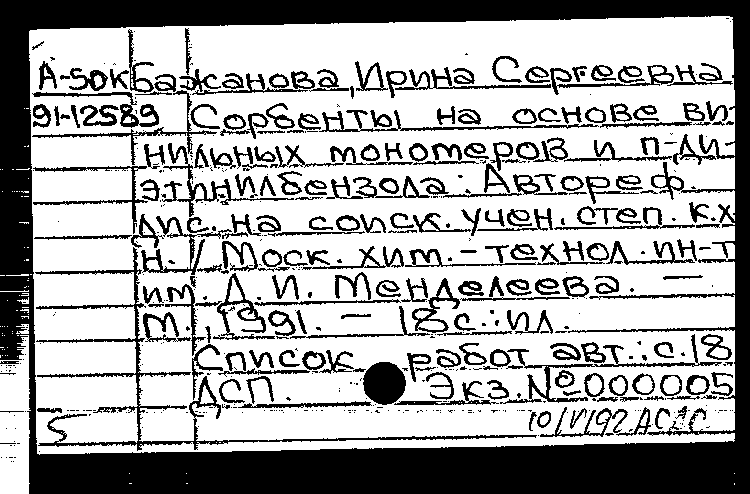 А-50к Бажанова, Ирина Сергеевна.
91-12589 Сорбенты на основе ви-
нильных мономеров и п-ди-
этинилбензола: Автореф.
дис. на соиск. учен. степ. к.х.
н. / Моск. хим.-технол. ин-т
им. Д. И. Менделеева. —
М., 1991. — 18 с.: ил.
Список работ авт.: с. 18
ДСП. Экз. № 000005
5 10/V192